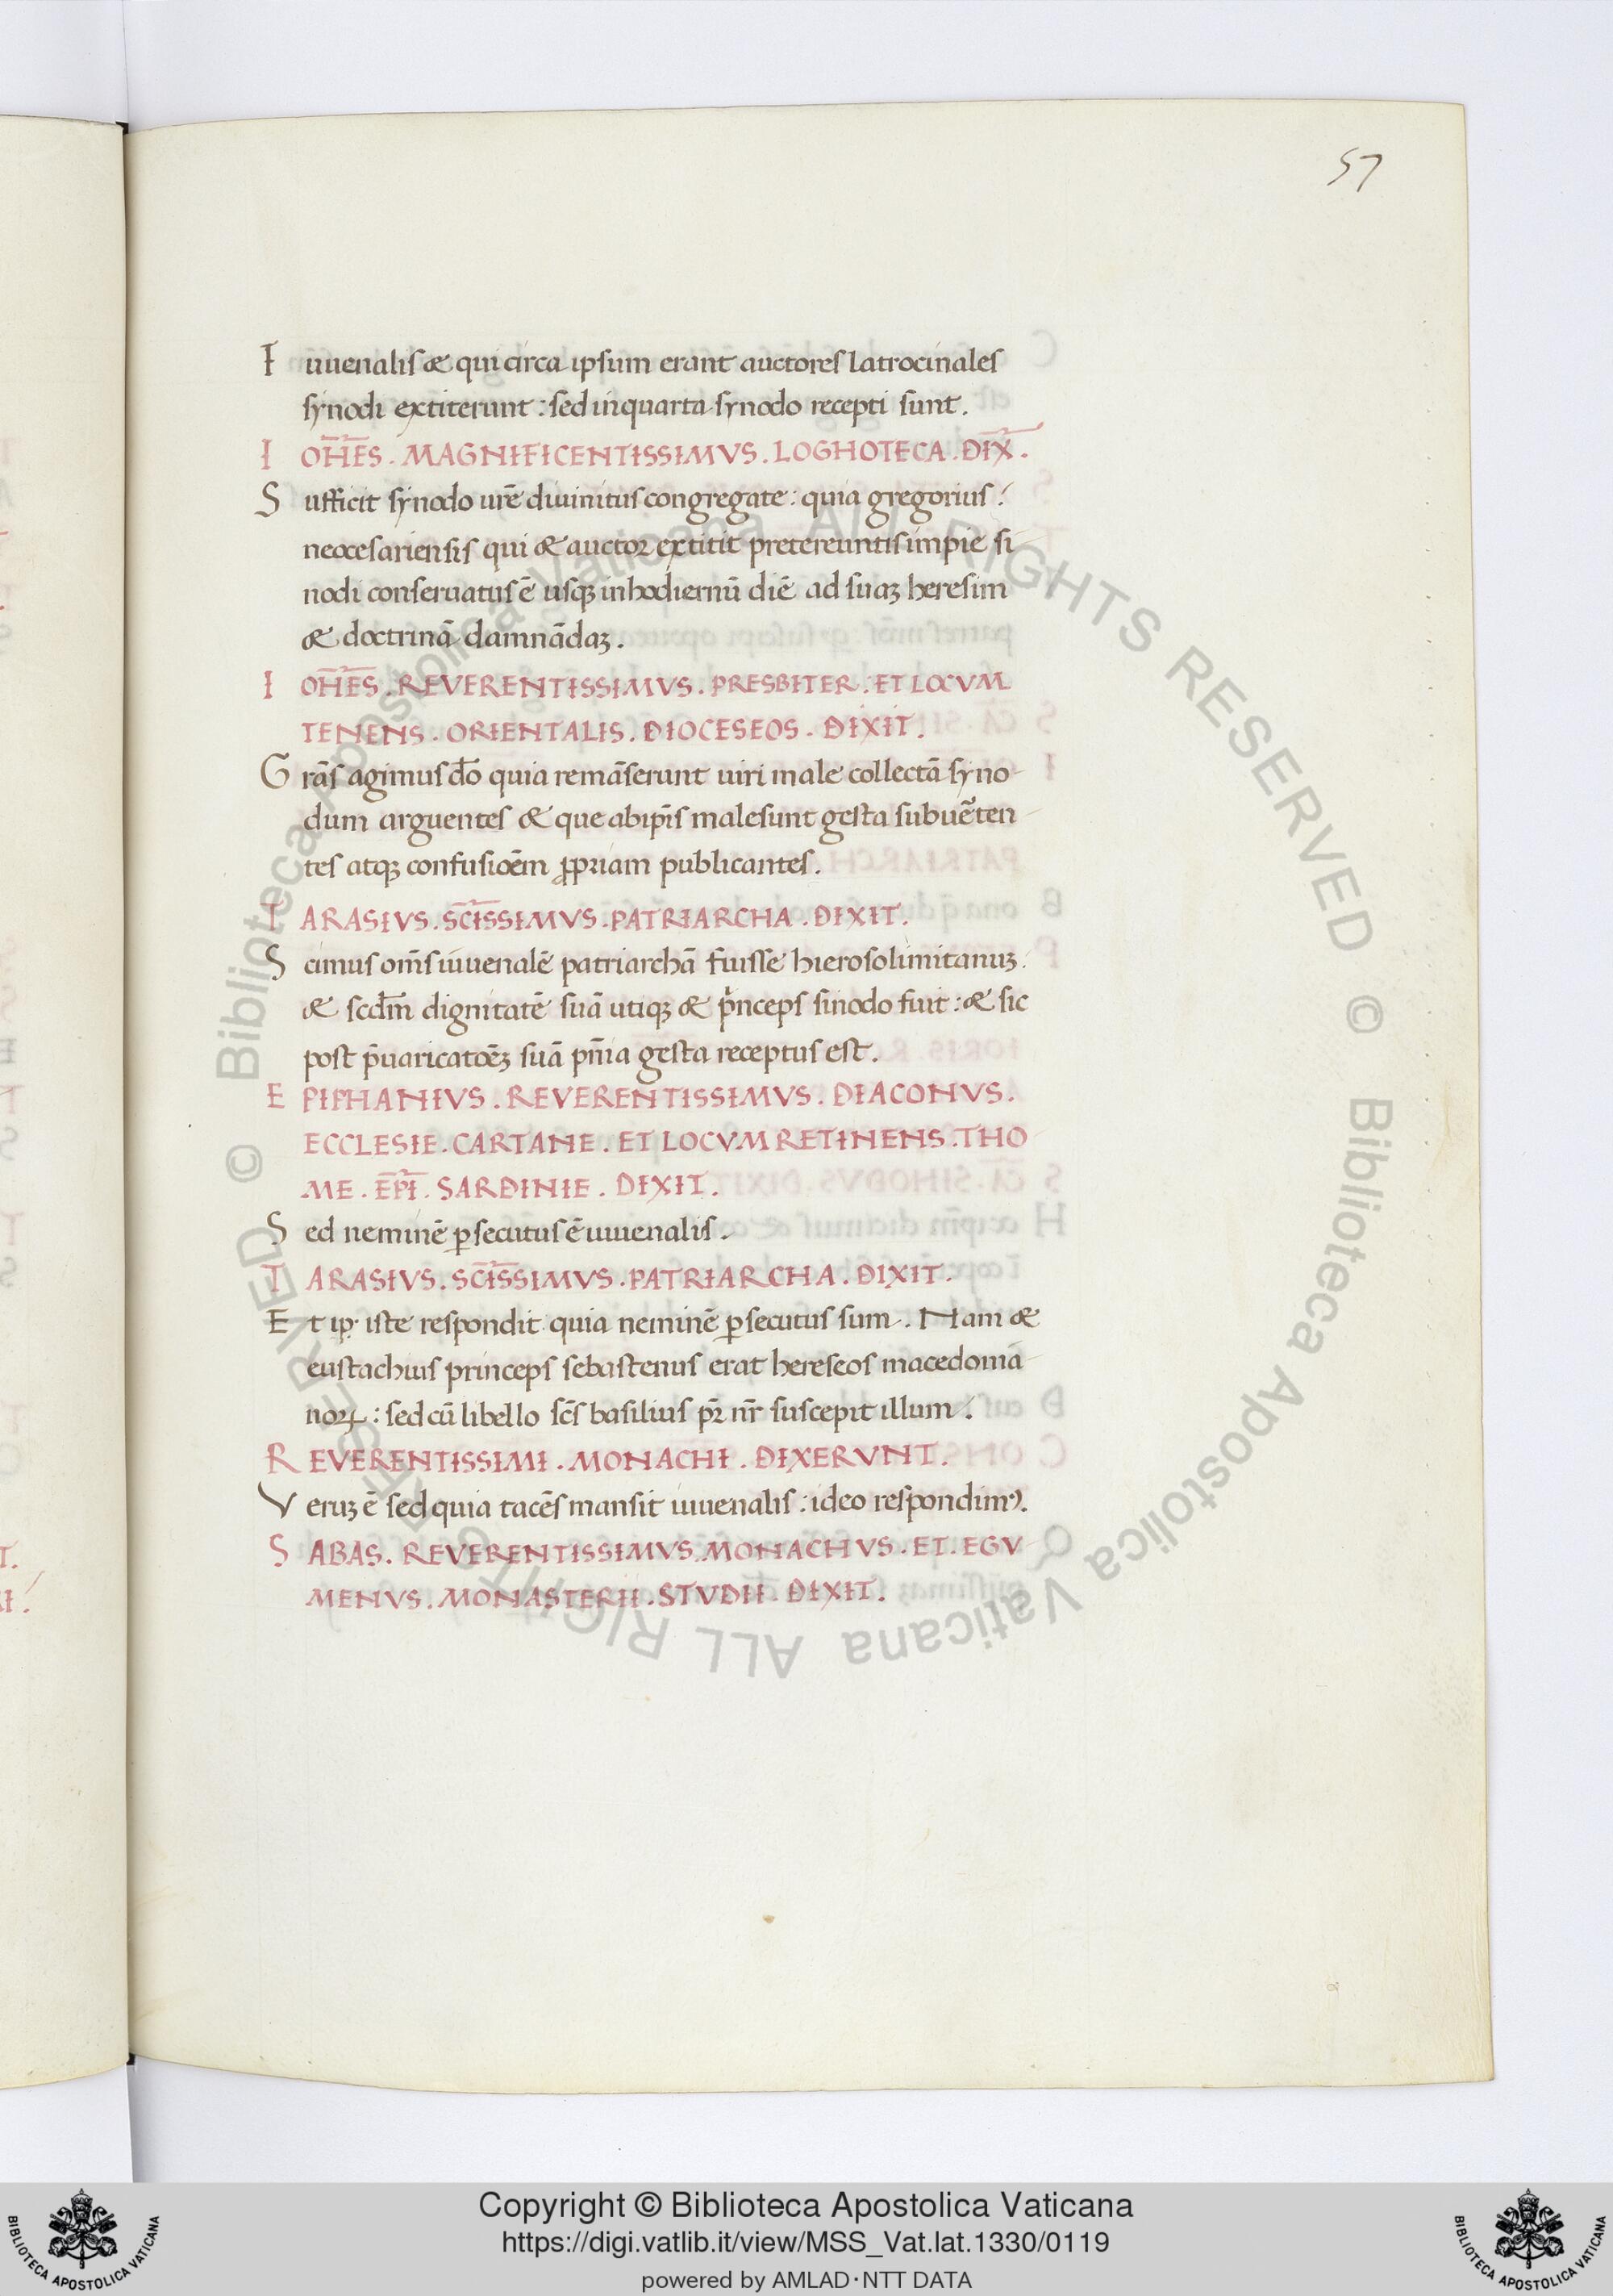 57
Iuuenalis & qui circa ipsum erant auctores latrocinales
synodi extiterunt : sed in quarta synodo recepti sunt.
IOH̅E̅S . MAGNIFICENTISSIMVS . LOGHOTECA . DIX̅ .
Sufficit synodo ur̅e diuinitus congregate : quia gregorius /
neocesariensis qui & auctor extitit pretereuntis impie si
nodi conseruatus ē usqꝫ in hodiernū diē ad suaꝫ heresim
& doctrinā damnādaꝫ .
IOH̅E̅S . REVERENTISSIMVS . PRESBITER . ET LOCVM
TENENS . ORIENTALIS . DIOCESEOS . DIXIT .
Grās agimus do̅ quia remāserunt uiri male collectā syno-
dum arguentes & que ab ip̅is male sunt gesta subue̅ten-
tes atqꝫ confusioe̅m ꝓpriam publicantes .
TARASIVS . SC̅IS̅SIMVS . PATRIARCHA . DIXIT .
Scimus om̅s iuuenalē patriarchā fuisse hierosolimitanuꝫ .
& scd̅m dignitatē suā utiqꝫ & pⁱnceps sinodo fuit : & sic
post p̅uaricatoe̅ꝫ suā pn̅ia gesta receptus est .
EPIPHANIVS . REVERENTISSIMVS . DIACONVS .
ECCLESIE . CARTANE . ET LOCVM RETINENS . THO
ME . EP̅I . SARDINIE . DIXIT .
Sed neminē ꝑsecutus ē iuuenalis .
TARASIVS . SC̅IS̅SIMVS . PATRIARCHA . DIXIT .
Et ip̱ iste respondit quia neminē ꝑsecutus sum . Nam &
eustachius princeps sebastenus erat hereseos macedonia-
noꝝ : sed cū libello sc̅s basilius pr̅ nr̅ suscepit illum /
REVERENTISSIMI . MONACHI . DIXERVNT .
Veruꝫ ē sed quia tacēs mansit iuuenalis : ideo respondimꝰ .
SABAS . REVERENTISSIMVS . MONACHVS . ET . EGV
MENVS . MONASTERII . STVDII . DIXIT .
© Biblioteca Apostolica Vaticana ALL RIGHTS RESERVED © Biblioteca Apostolica Vaticana ALL RIGHTS RESERVED
Copyright © Biblioteca Apostolica Vaticana
https://digi.vatlib.it/view/MSS_Vat.lat.1330/0119
powered by AMLAD·NTT DATA
BIBLIOTECA APOSTOLICA VATICANA
BIBLIOTECA APOSTOLICA VATICANA